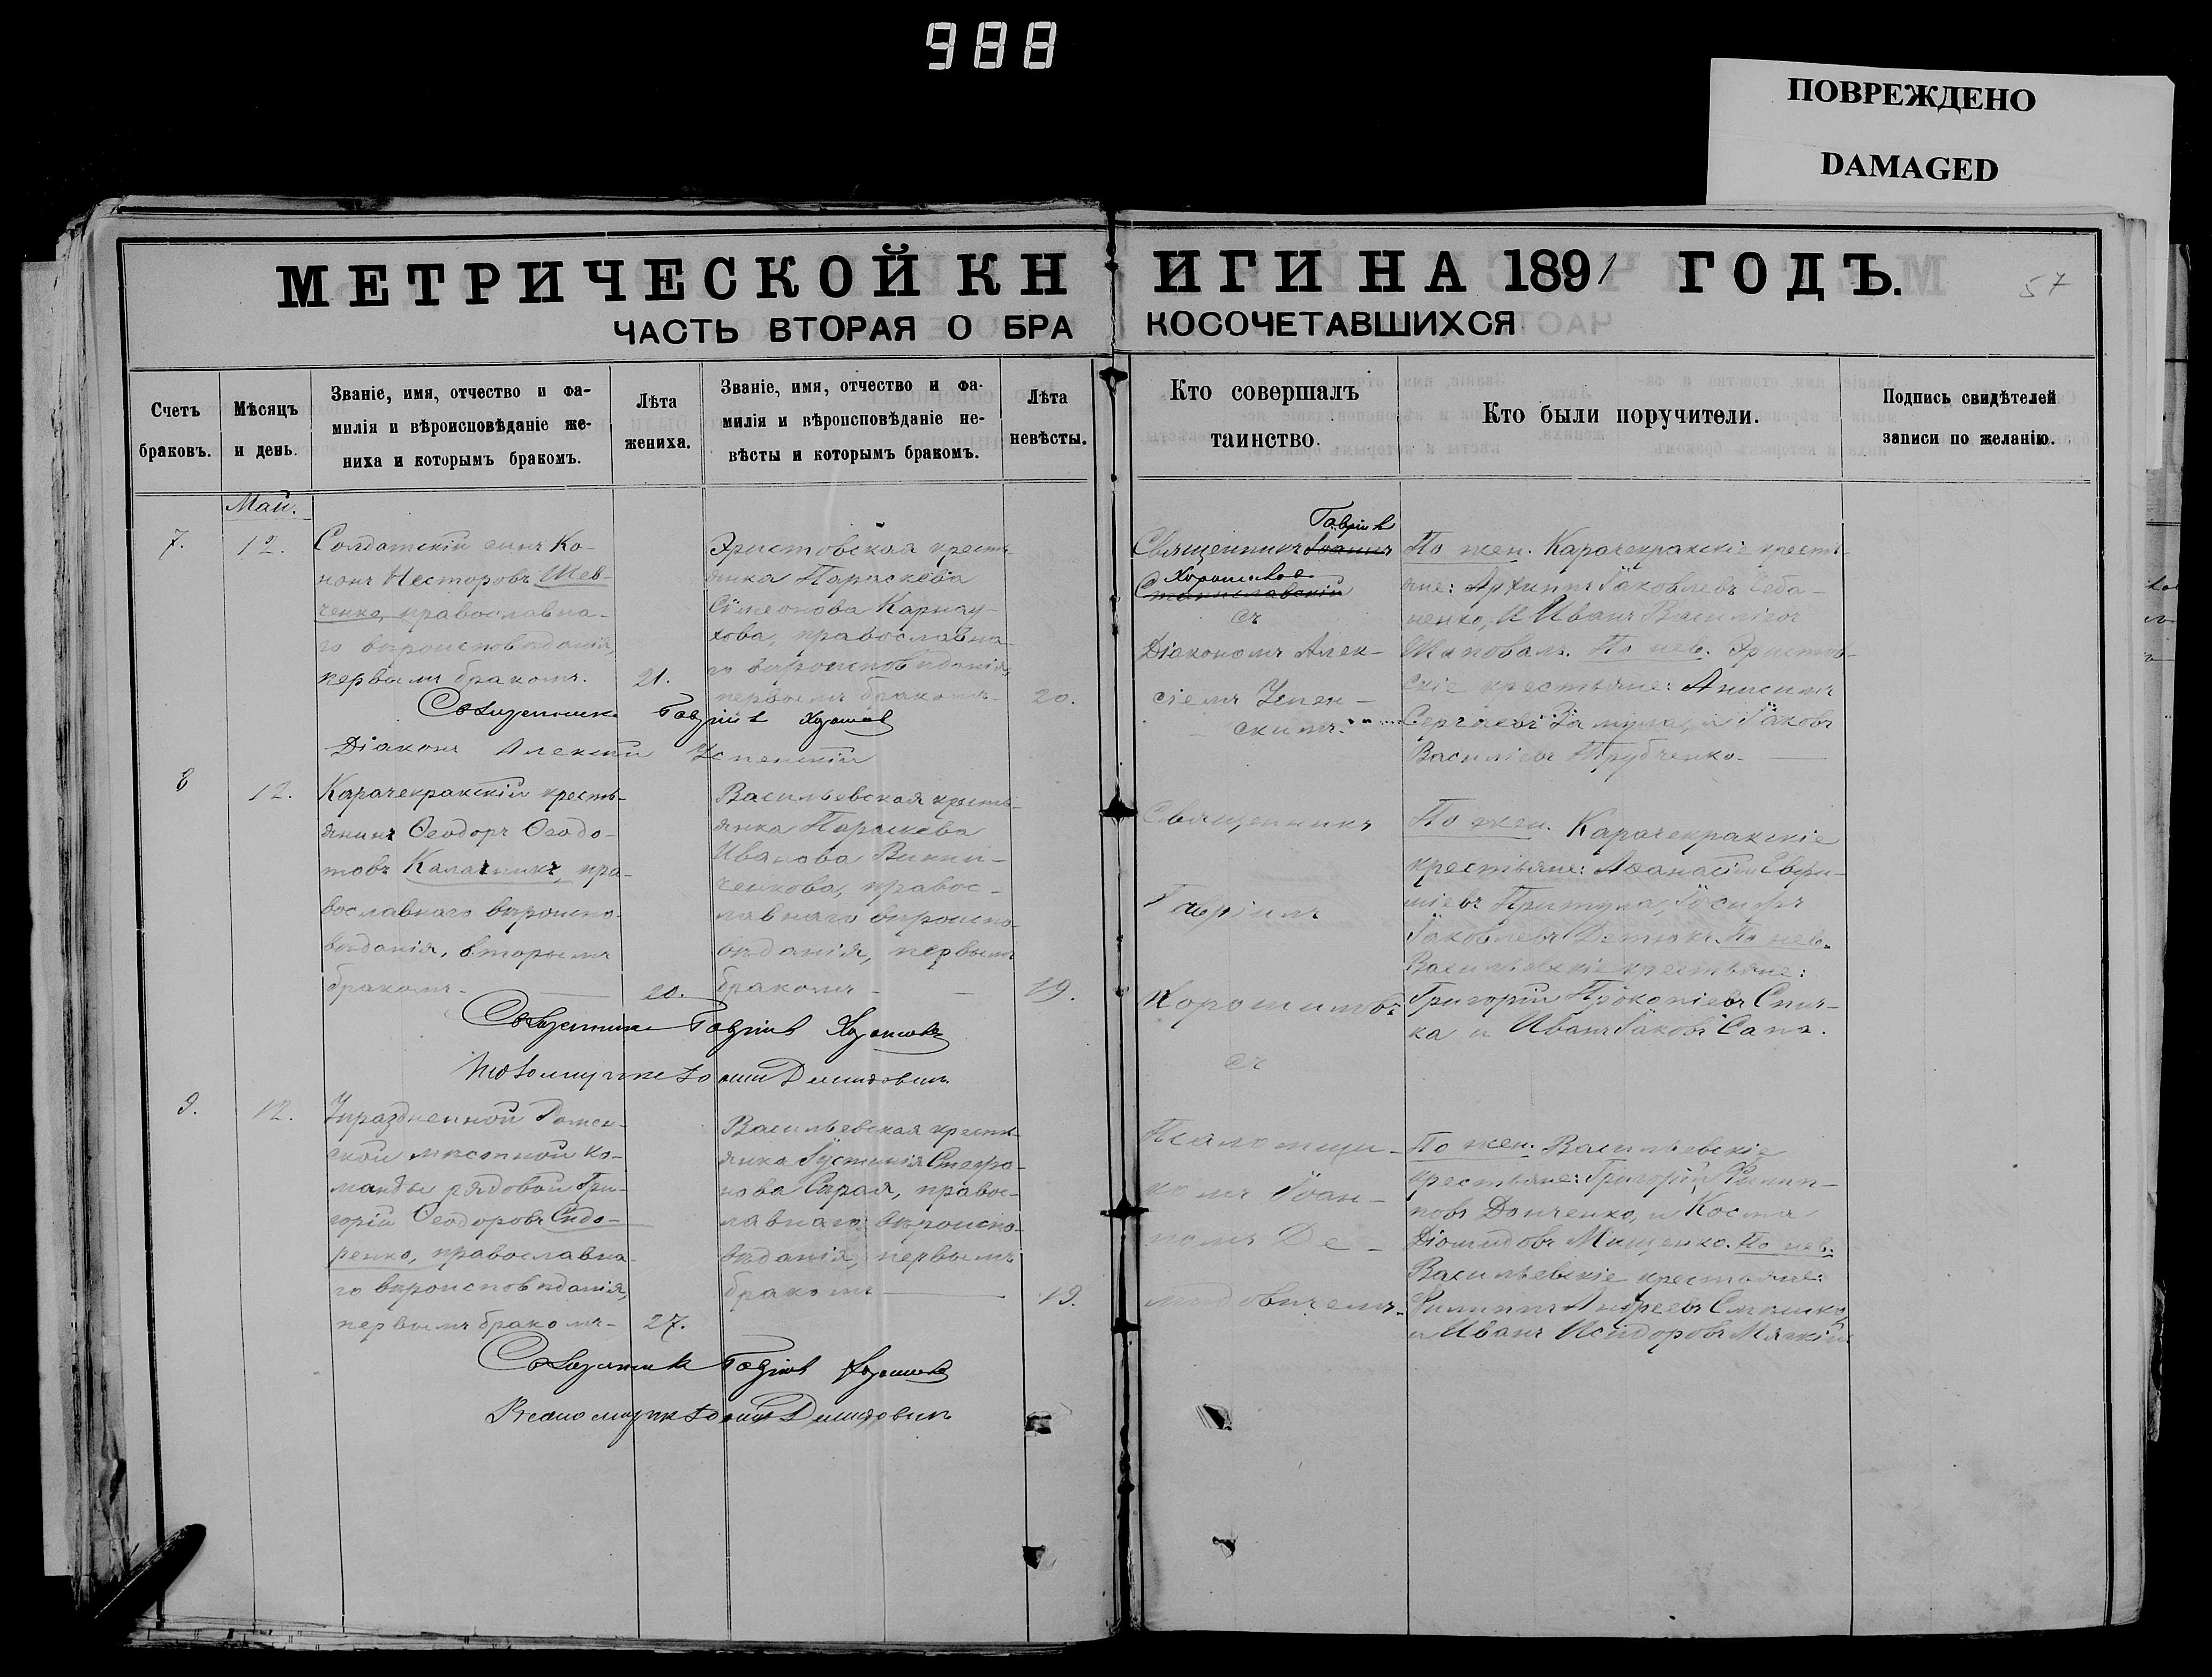 988
ПОВРЕЖДЕНО
DAMAGED
МЕТРИЧЕСКОЙ КНИГИ НА 1891 ГОДЪ.
57
ЧАСТЬ ВТОРАЯ О БРАКОСОЧЕТАВШИХСЯ
Счетъ браковъ.
Мѣсяцъ и день.
Званіе, имя, отчество и фа-
милія и вѣроисповѣданіе же-
ниха и которымъ бракомъ.
Лѣта жениха.
Званіе, имя, отчество и фа-
милія и вѣроисповѣданіе не-
вѣсты и которымъ бракомъ.
Лѣта невѣсты.
Кто совершалъ
таинство.
Кто были поручители.
Подпись свидѣтелей
записи по желанію.
Май.
7.
12.
Солдатскій сынъ Ко-
нонъ Несторовъ Шев-
ченко, православна-
го вѣроисповѣданія,
первымъ бракомъ.
21.
Эристовская крестъ-
янка Параскева
Сімеонова Карнау-
хова, православна-
го вѣроисповѣданія,
первымъ бракомъ
20.
Гавріилъ
Священникъ Іоаннъ
Хорошиловъ
съ
Діакономъ Алек-
сіемъ Успен-
скимъ.
По жен. Карачекракскіе крестъ-
яне: Архиппъ Іаковлевъ
ненко, и Иванъ Василіевъ
Шаповалъ. По нев. Эристов-
скіе крестьяне: Анисимъ
Сергіевъ и Іаковъ
Василіевъ Трубченко.
Священникъ Гавріилъ Хорошиловъ
Діаконъ Алексій Успенскій
8
12.
Карачекракскій крестъ-
янинъ Ѳеодоръ Ѳеодо-
товъ Калачникъ, пра-
вославнаго вѣроиспо-
вѣданія, вторымъ
бракомъ.
20.
Васильевская крестъ-
янка Параскева
Иванова Винни-
ченкова, правос-
лавнаго вѣроиспо-
вѣданія, первымъ
бракомъ
19.
Священникъ
Гавріилъ
Хорошиловъ
съ
Псаломщи-
комъ Іоан-
номъ Де-
мидовичемъ.
По жен. Карачекракскіе
крестьяне: Аѳанасій Евфи-
міевъ Притула, Іосифъ
Іаковлевъ Детюкъ. По нев.
Васильевскіе крестьяне:
Григорій Прокопіевъ Спич-
ка и Иванъ Іаковъ Сапа.
Священникъ Гавріилъ Хорошиловъ
Псаломщикъ Іоаннъ Демидовичъ
9.
12.
Упраздненной Ромен-
ской мѣстной ко-
манды рядовой Гри-
горій Ѳеодоровъ Сидо-
ренко, православна-
го вѣроисповѣданія,
первымъ бракомъ
27.
Васильевская крестъ-
янка Іустинія Стефа-
нова Сѣрая, правос-
лавнаго вѣроиспо-
вѣданія, первымъ
бракомъ
19.
По жен. Васильевскіе
крестьяне: Григорій Филип-
повъ Донченко, и Косма
Діомидовъ Мищенко. По нев.
Васильевскіе крестьяне:
Филиппъ Андреевъ
и Иванъ Исидоровъ Мягкій.
Священникъ Гавріилъ Хорошиловъ
Псаломщикъ Іоаннъ Демидовичъ